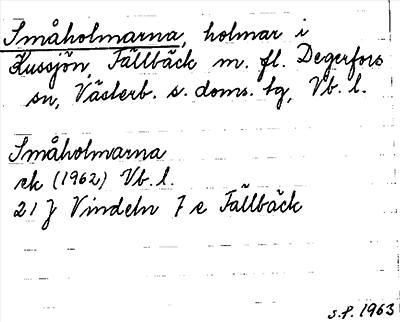 Småholmarna, holmar i
Kussjön, Fällbäck m. fl. Degerfors
sn, Västerb. s. doms. tg, Vb. l.
Småholmarna
ek (1962) Vb. l.
21 J Vindeln 7 e Fällbäck
s.f. 1963